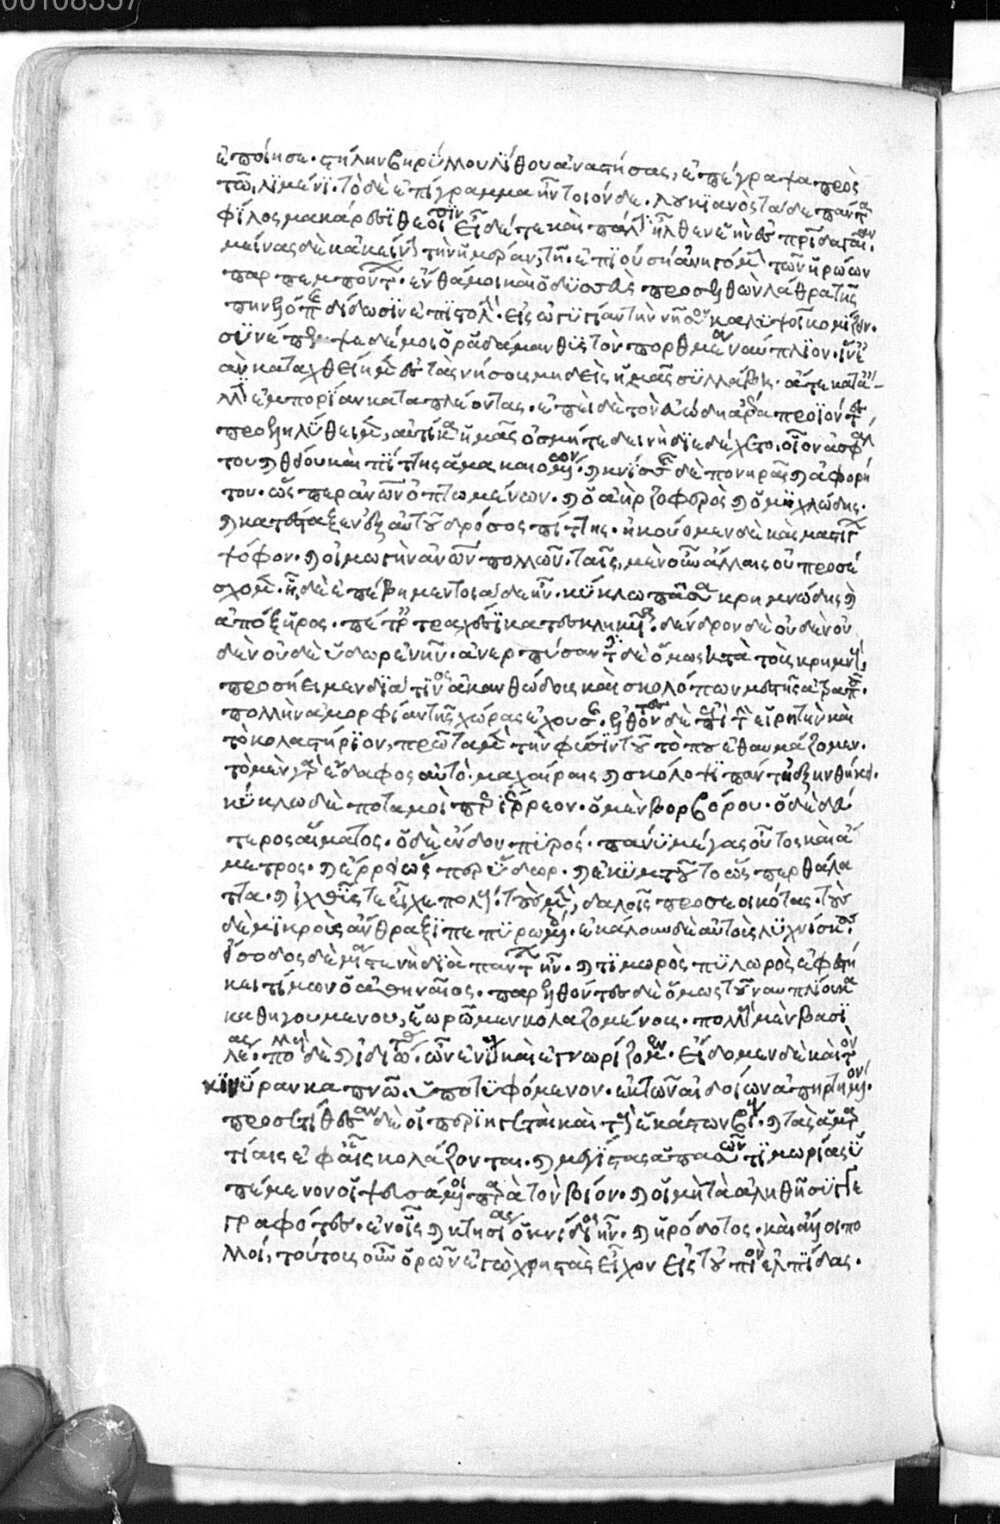 00108337
ἐποίησε· στήλην βηρύλλου λίθου ἀναστήσας, ἐπέγραψα πρὸς
τῶ λιμένι· τὸ δὲ ἐπίγραμμα ἦν τοιόνδε· λουκιανὸς τάδε πάντα
φίλος μακάρεσσι θεοῖσιν εἶδέ τε καὶ πάλιν ἦλθεν ἑὴν ἐς πατρίδα γαῖαν·
μείνας δὲ κἀκείνην τὴν ἡμέραν, τῆ ἐπιούσῃ ἀνηγόμην τῶν ἡρώων
παραπεμπόντων· ἔνθα μοι καὶ ὀδυσσεὺς προσελθὼν λάθρα τῆς
πηνελόπης δίδωσιν ἐπιστολὴν εἰς ὠγυγίαν τὴν νῆσον καλυψοῖ κομίζειν·
συνέπεμψε δέ μοι ὁ ῥαδάμανθυς τὸν πορθμέα ναύπλιον· ἵν' ἐ
ὰν καταχθείημεν ἐς τὰς νήσους μηδεὶς ἡμᾶς συλλάβη· ἅτε κατ' ἄλ
λην ἐμπορίαν καταπλέοντας· ἐπεὶ δὲ τὸν εὐώδη ἀέρα προϊόντες
προεληλύθειμεν, αὐτίκα ἡμᾶς ὀσμή τε δεινὴ διεδέχετο, οἷον ἀσφάλ
του καὶ θείου καὶ πίττης ἅμα καιομένων· καὶ κνίσσα δὲ πονηρὰ καὶ ἀφόρη
τος· ὥσπερ ἀνθρώπων ὀπτωμένων· καὶ ὁ ἀὴρ ζοφερὸς καὶ ὁμιχλώδης·
καὶ κατέσταζεν ἐξ αὐτοῦ δρόσος πίττης· ἠκούομεν δὲ καὶ μαστίγων
ψόφον· καὶ οἰμωγὴν ἀνθρώπων πολλῶν· ταῖς μὲν οὖν ἄλλαις οὐ προσέ
σχομεν· ἧ δὲ ἐπέβημεν τοιάδε ἦν· κύκλω πᾶσα κρημνώδης καὶ
ἀπόξηρος· πέτραις τραχέσι κατεσκληκυῖα· δένδρον δὲ οὐδὲν οὐ
δὲν οὐδὲ ὕδωρ ἐνῆν· ἀνερπύσαντες δὲ ὅμως κατὰ τοὺς κρημνοὺς
προσήειμεν διά τινος ἀκανθώδους καὶ σκολόπων μεστῆς ἀτραποῦ·
πολλὴν ἀμορφίαν τῆς χώρας ἐχούσης· ἐλθόντες δὲ ἐπὶ τὴν εἱρκτὴν καὶ
τὸ κολαστήριον, πρῶτα μὲν τὴν φύσιν τοῦ τόπου ἐθαυμάζομεν·
τὸ μὲν γὰρ ἔδαφος αὐτὸ μαχαίραις καὶ σκόλοψι πάντη ἐξηνθήκει·
κύκλω δὲ ποταμοὶ περιέρρεον· ὁ μὲν βορβόρου· ὁ δὲ δεύ
τερος αἵματος· ὁ δὲ ἔνδον πυρός· πάνυ μέγας οὗτος καὶ ἀ
πέρατος· καὶ ἔρρει ὥσπερ ὕδωρ· καὶ ἐκυματοῦτο ὥσπερ θάλα
ττα· καὶ ἰχθῦς τε εἶχε πολλούς· τοὺς μὲν, δαλοῖς προσεοικότας· τοὺς
δὲ μικροὺς ἄνθραξι πεπυρωμένοις· ἐκάλουν δὲ αὐτοὺς λυχνίσκους·
εἴσοδος δὲ μία στενὴ διὰ πάντων ἦν· καὶ τιμωρὸς πυλωρὸς ἐφειστή
κει τίμων ὁ ἀθηναῖος· παρελθόντες δὲ ὅμως τοῦ ναυπλίου κα
καθηγουμένου, ἑωρῶμεν κολαζομένους· πολλοὺς μὲν βασι
λέας· πολλοὺς δὲ καὶ ἰδιώτας· ὧν ἐνίους καὶ ἐγνωρίζομεν· εἴδομεν δὲ καὶ τὸν
κινύραν καπνῶ ὑποτυφόμενον· ἐκ τῶν αἰδοίων ἀπηρτημένον·
προσετίθεσαν δὲ οἱ περιηγηταὶ καὶ τοὺς ἑκάστων βίους· καὶ τὰς ἁμαρ
τίας ἐφ' αἷς κολάζονται· καὶ μεγίστας ἁπασῶν τιμωρίας ὑ
πέμενον οἱ ψευσάμενοι παρὰ τὸν βίον· καὶ οἱ μὴ τὰ ἀληθῆ συγγε
γραφότες· ἐν οἷς καὶ κτησίας ὁ κνίδιος ἦν· καὶ ἡρόδοτος· καὶ ἄλλοι πο
λλοί, τούτους οὖν ὁρῶν ἐγὼ χρηστὰς εἶχον εἰς τοὐπιὸν ἐλπίδας·